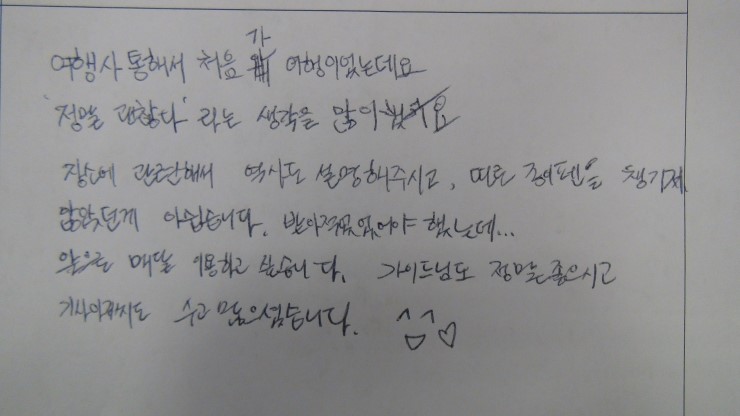 여행사 통해서 처음 가 여행이었는데요
'정말 괜찮다' 라는 생각을 많이 했어요
장소에 관련해서 역사도 설명해주시고, 따로 종이펜을 챙기지
않았던게 아쉽습니다. 받아적었어야 했는데...
앞으로 매달 이용하고 싶습니다. 가이드님도 정말 좋으시고
기사아저씨도 수고 많으셨습니다.